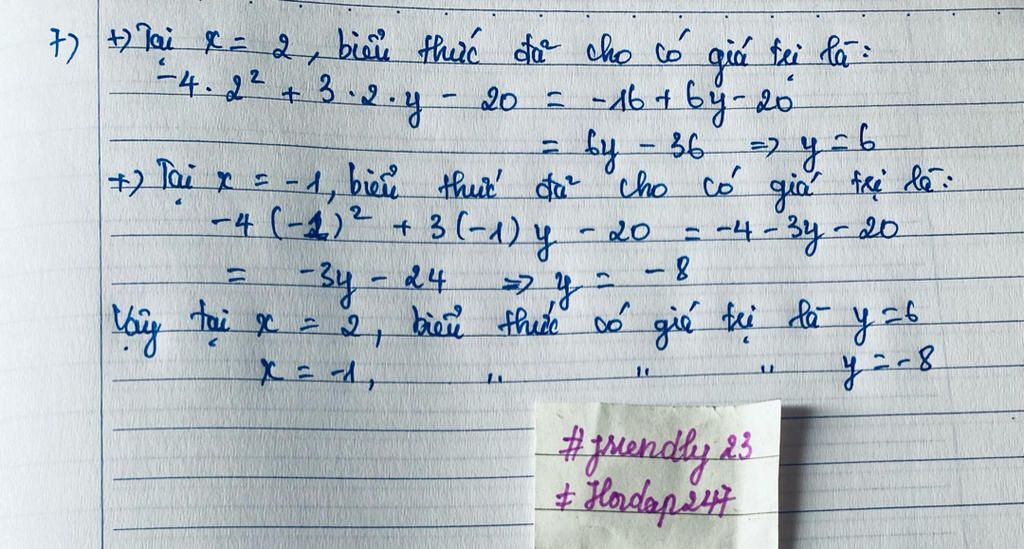 7) +) Tại x = 2, biểu thức đã cho có giá trị là:
-4 · 2² + 3 · 2 · y - 20 = -16 + 6y - 20
= 6y - 36 => y = 6
+) Tại x = -1, biểu thức đã cho có giá trị là:
-4 (-1)² + 3 (-1) y - 20 = -4 - 3y - 20
= -3y - 24 => y = -8
Vậy tại x = 2, biểu thức có giá trị là y = 6
x = -1, " " " y = -8
# friendly 23
# Hoidap247